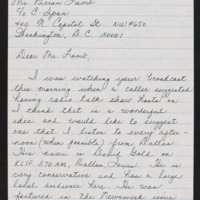 Mr. Brian Lamb
C/o C-Span
400 N. Capitol St. NW #650
Washington, D.C. 20001
Dear Mr. Lamb,
I was watching your broadcast
this morning when a caller suggested
having radio talk show hosts on.
I think that is a wonderful
idea and would like to suggest
one that I listen to every after-
noon (when possible) from Dallas.
His name is David Gold on
KLIF, 570 AM, Dallas, Texas. He is
very conservative and has a large
local audience here. He was
featured in the Newsweek issue